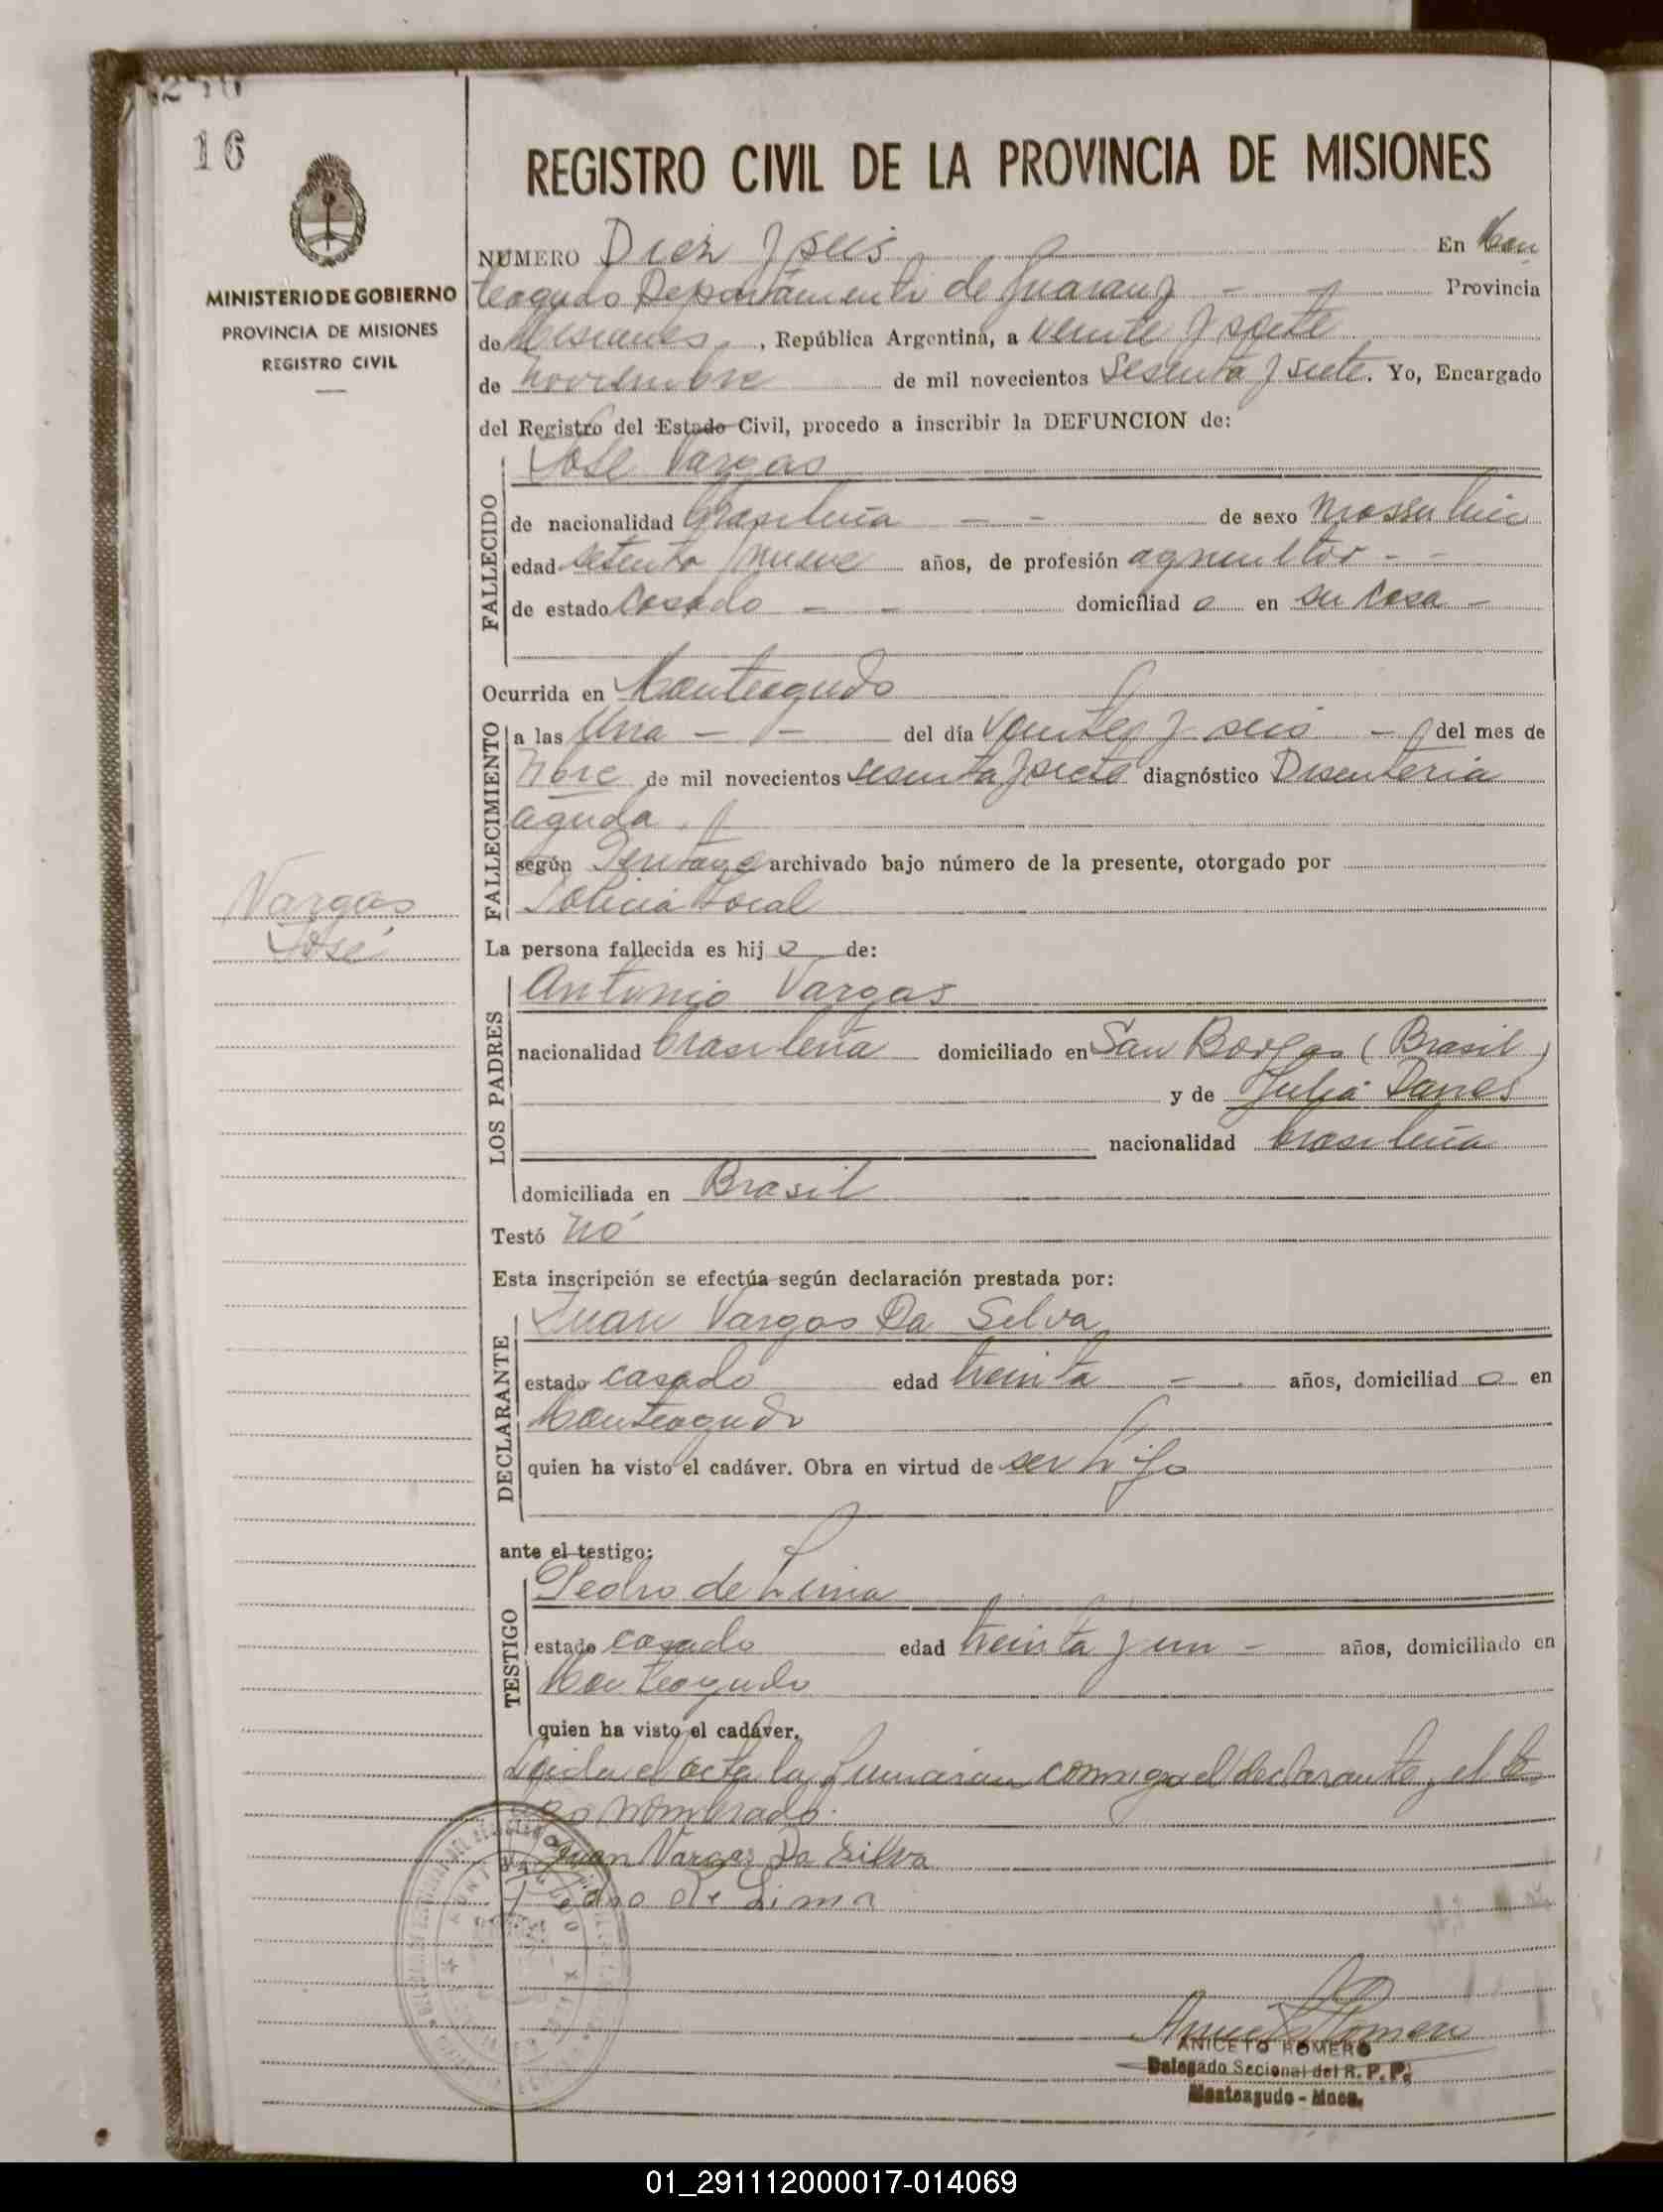 16
MINISTERIO DE GOBIERNO
PROVINCIA DE MISIONES
REGISTRO CIVIL
REGISTRO CIVIL DE LA PROVINCIA DE MISIONES
NUMERO Diez y seis En Mon
teagudo Departamento de Guarany - - Provincia
de Misiones, República Argentina, a veinte y siete
de noviembre de mil novecientos sesenta y siete. Yo, Encargado
del Registro del Estado Civil, procedo a inscribir la DEFUNCION de:
José Vargas
FALLECIDO
de nacionalidad brasileña - - de sexo massculino
edad setenta y nueve años, de profesión agricultor - -
de estado casado - - domiciliad o en su casa -
Ocurrida en Monteagudo
FALLECIMIENTO
a las Una - - del día veinte y seis - del mes de
Nbre de mil novecientos sesenta y siete diagnóstico Disenteria
aguda.
según archivado bajo número de la presente, otorgado por
Policia Local
Vargas
José
La persona fallecida es hij o de:
LOS PADRES
Antonio Vargas
nacionalidad brasileña domiciliado en San Borjas (Brasil)
y de Julia
nacionalidad brasileña
domiciliada en Brasil
Testó nó
Esta inscripción se efectúa según declaración prestada por:
DECLARANTE
Juan Vargas Da Silva
estado casado edad treinta - años, domiciliad o en
Monteagudo
quien ha visto el cadáver. Obra en virtud de ser hijo
ante el testigo:
TESTIGO
Pedro de Lima
estado casado edad treinta y un - años, domiciliado en
Monteagudo
quien ha visto el cadáver.
Leida el acta la firmaran conmigo el declarante, el tes
tigo nombrado.
Juan Vargas Da Silva
Pedro De Lima
ANICETO ROMERO
Delegado Secional del R. P. P.
Monteagudo - Mnes.
01_291112000017-014069